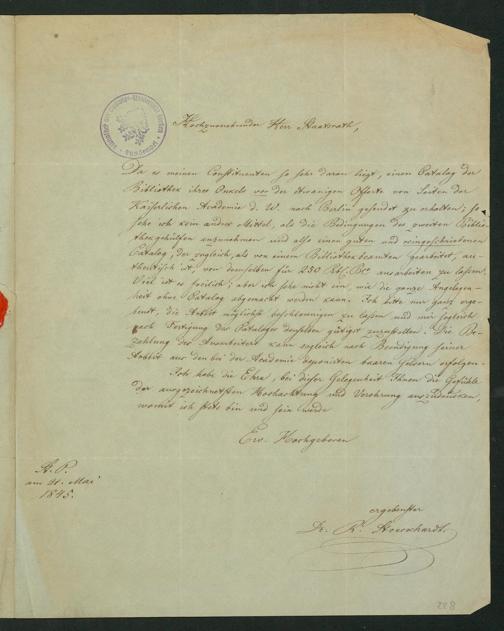 Hochzuverehrender Herr Staatsrath,
Da es meinen Constituenten so sehr daran liegt, einen Catalog der
Bibliothek ihres Onkels vor der etwanigen Offerte von Seiten der
Kaiserlichen Academie d. W. nach Berlin gesendet zu erhalten; so
sehe ich kein andres Mittel, als die Bedingungen des zweiten Biblio-
thekgehülfen anzunehmen und also einen guten und
Catalog, der zugleich, als von einem Bibliothekbeamten gearbeitet, au-
thentisch ist, von demselben für 250 Rbl. anarbeiten zu lassen.
Viel ist es freilich; aber ich sehe nicht ein, wie die ganze Angelegen-
heit ohne Catalog abgemacht werden kann. Ich bitte nur ganz erge-
benst, die Arbeit möglichst beschleunigen zu lassen und mir sogleich
nach Fertigung des Cataloges denselben gütigst zuzustellen. Die Be-
zahlung des Ausarbeiters kann sogleich nach Beendigung seiner
Arbeit aus den bei der Academie deponirten baaren Geldern erfolgen.
Ich habe die Ehre, bei dieser Gelegenheit Ihnen die Gefühle
der ausgezeichnetsten Hochachtung und Verehrung auszudrücken,
womit ich stets bin und sein werde
Ew. Hochgeboren
St. P.
am Mai
1845.
ergebenster
Dr. R. Stoeckhardt.
228